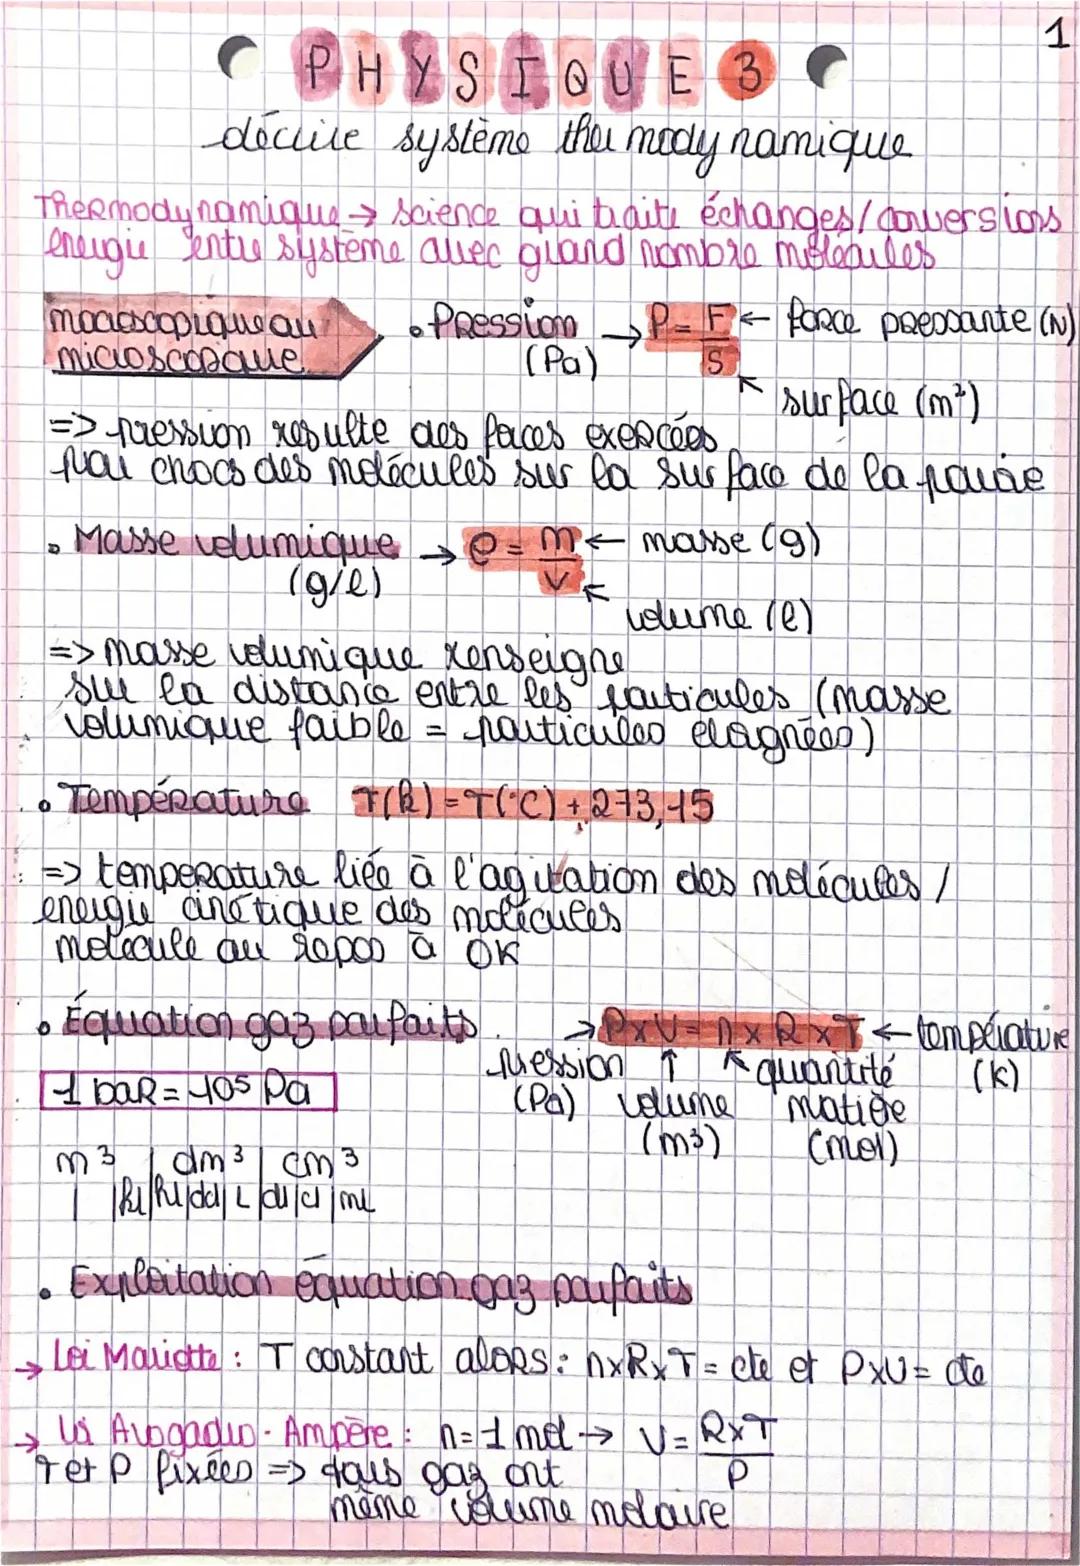 1
PHYSIQUE 3
décrire système thermodynamique
Thermodynamique → science qui traite échanges/conversions
énergie entre système avec grand nombre molécules
macroscopique au
microscopique
• Pression (Pa) → P = F/S ← force pressante (N)
surface (m²)
=> pression resulte des forces exercées
par chocs des molécules sur la surface de la paroie
• Masse volumique (g/l) → ρ = m/V ← masse (g)
volume (l)
=> masse volumique renseigne
sur la distance entre les particules (masse
volumique faible = particules elognées)
• Température T(k) = T(°C) + 273,15
=> temperature liée à l'agitation des molécules /
énergie cinétique des molécules
molécule au repos à 0K
• Équation gaz parfaits → P x V = n x R x T ← température (K)
pression (Pa) ↑ volume (m³) quantité matière (mol)
1 baR = 10⁵ Pa
m³ | dm³ | cm³
| kl | hl | dal | L | dl | cl | ml
• Exploitation équation gaz parfaits
→ Loi Mariotte : T constant alors : n x R x T = cte et P x V = cte
→ Loi Avogadro - Ampère : n = 1 mol → V = R x T / P
T et P fixées => tous gaz ont
même volume molaire